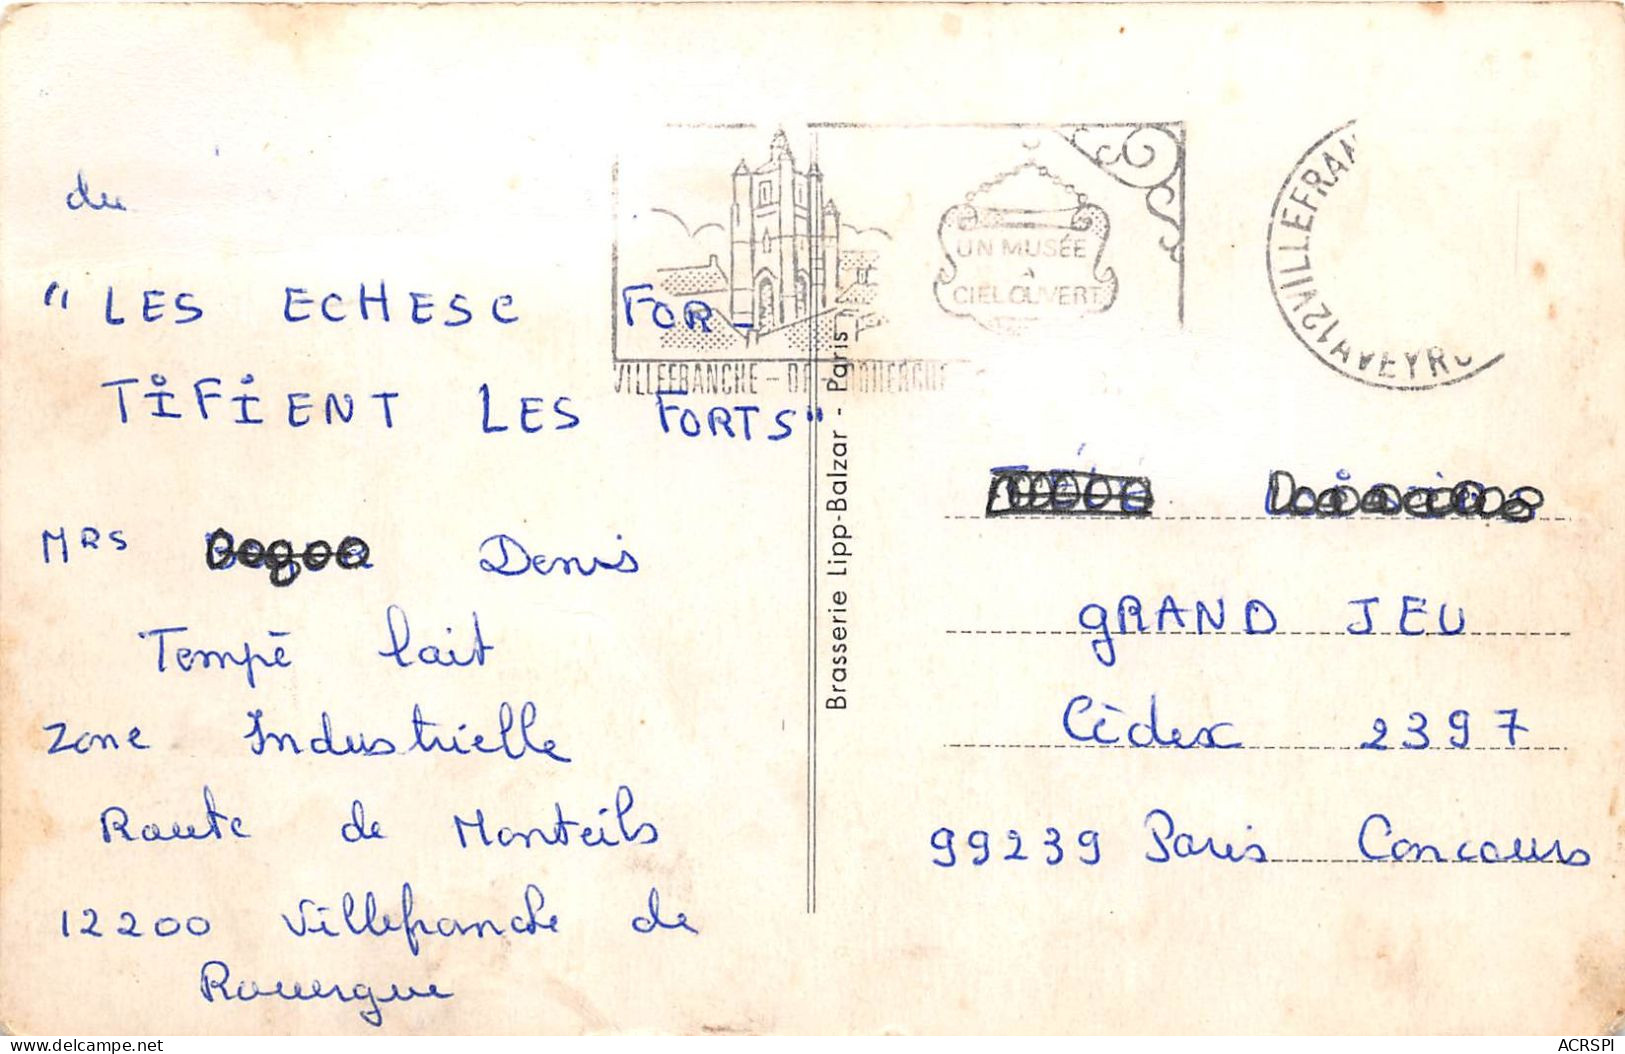 du
" LES ECHESC FOR-
TIFIENT LES FORTS"
MRS Denis
Tempé lait
Zone Industrielle
Route de Monteils
12200 Villefranche de
Rouergue
UN MUSÉE
À
CIEL OUVERT
VILLEFRANCHE - DE
12 VILLEFRAN
AVEYRO
Brasserie Lipp-Balzar - Paris
GRAND JEU
Cèdex 2397
99239 Paris Concours
delcampe.net
ACRSPI